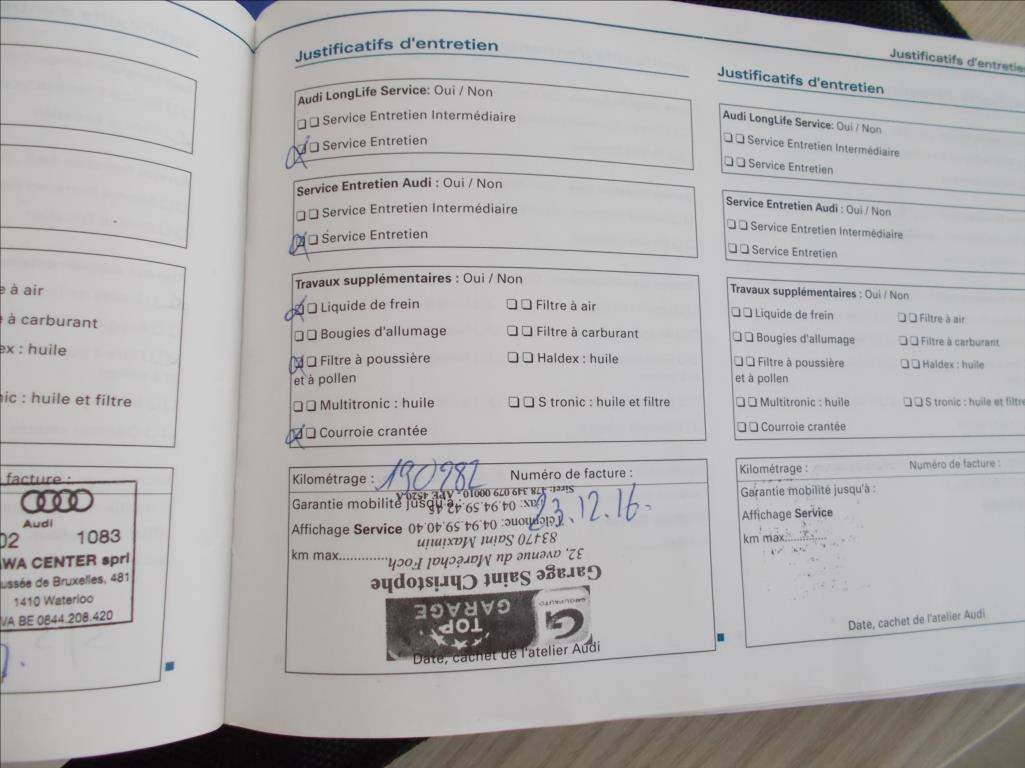 e à air
e à carburant
ex : huile
ic : huile et filtre
facture :
Audi
02 1083
WA CENTER sprl
ussée de Bruxelles, 481
1410 Waterloo
VA BE 0844.208.420
Justificatifs d'entretien
Audi LongLife Service: Oui / Non
Service Entretien Intermédiaire
Service Entretien
Service Entretien Audi : Oui / Non
Service Entretien Intermédiaire
Service Entretien
Travaux supplémentaires : Oui / Non
Liquide de frein Filtre à air
Bougies d'allumage Filtre à carburant
Filtre à poussière Haldex : huile
et à pollen
Multitronic : huile S tronic : huile et filtre
Courroie crantée
Kilométrage : 190982 Numéro de facture :
Garantie mobilité jusqu'à :
23.12.16.
Affichage Service
km max..............
Garage Saint Christophe
32, avenue du Maréchal Foch
83470 Saint Maximin
Téléphone: 04.94.59.40.40
Fax: 04.94.59.42.46
Siret: 478 349 079 00010 - APE 4520A
TOP
GARAGE
G
GROUPAUTO
Date, cachet de l'atelier Audi
Justificatifs d'entretien
Justificatifs d'entretien
Audi LongLife Service: Oui / Non
Service Entretien Intermédiaire
Service Entretien
Service Entretien Audi : Oui / Non
Service Entretien Intermédiaire
Service Entretien
Travaux supplémentaires : Oui / Non
Liquide de frein Filtre à air
Bougies d'allumage Filtre à carburant
Filtre à poussière Haldex : huile
et à pollen
Multitronic : huile S tronic : huile et filtre
Courroie crantée
Kilométrage : Numéro de facture :
Garantie mobilité jusqu'à :
Affichage Service
km max............
Date, cachet de l'atelier Audi